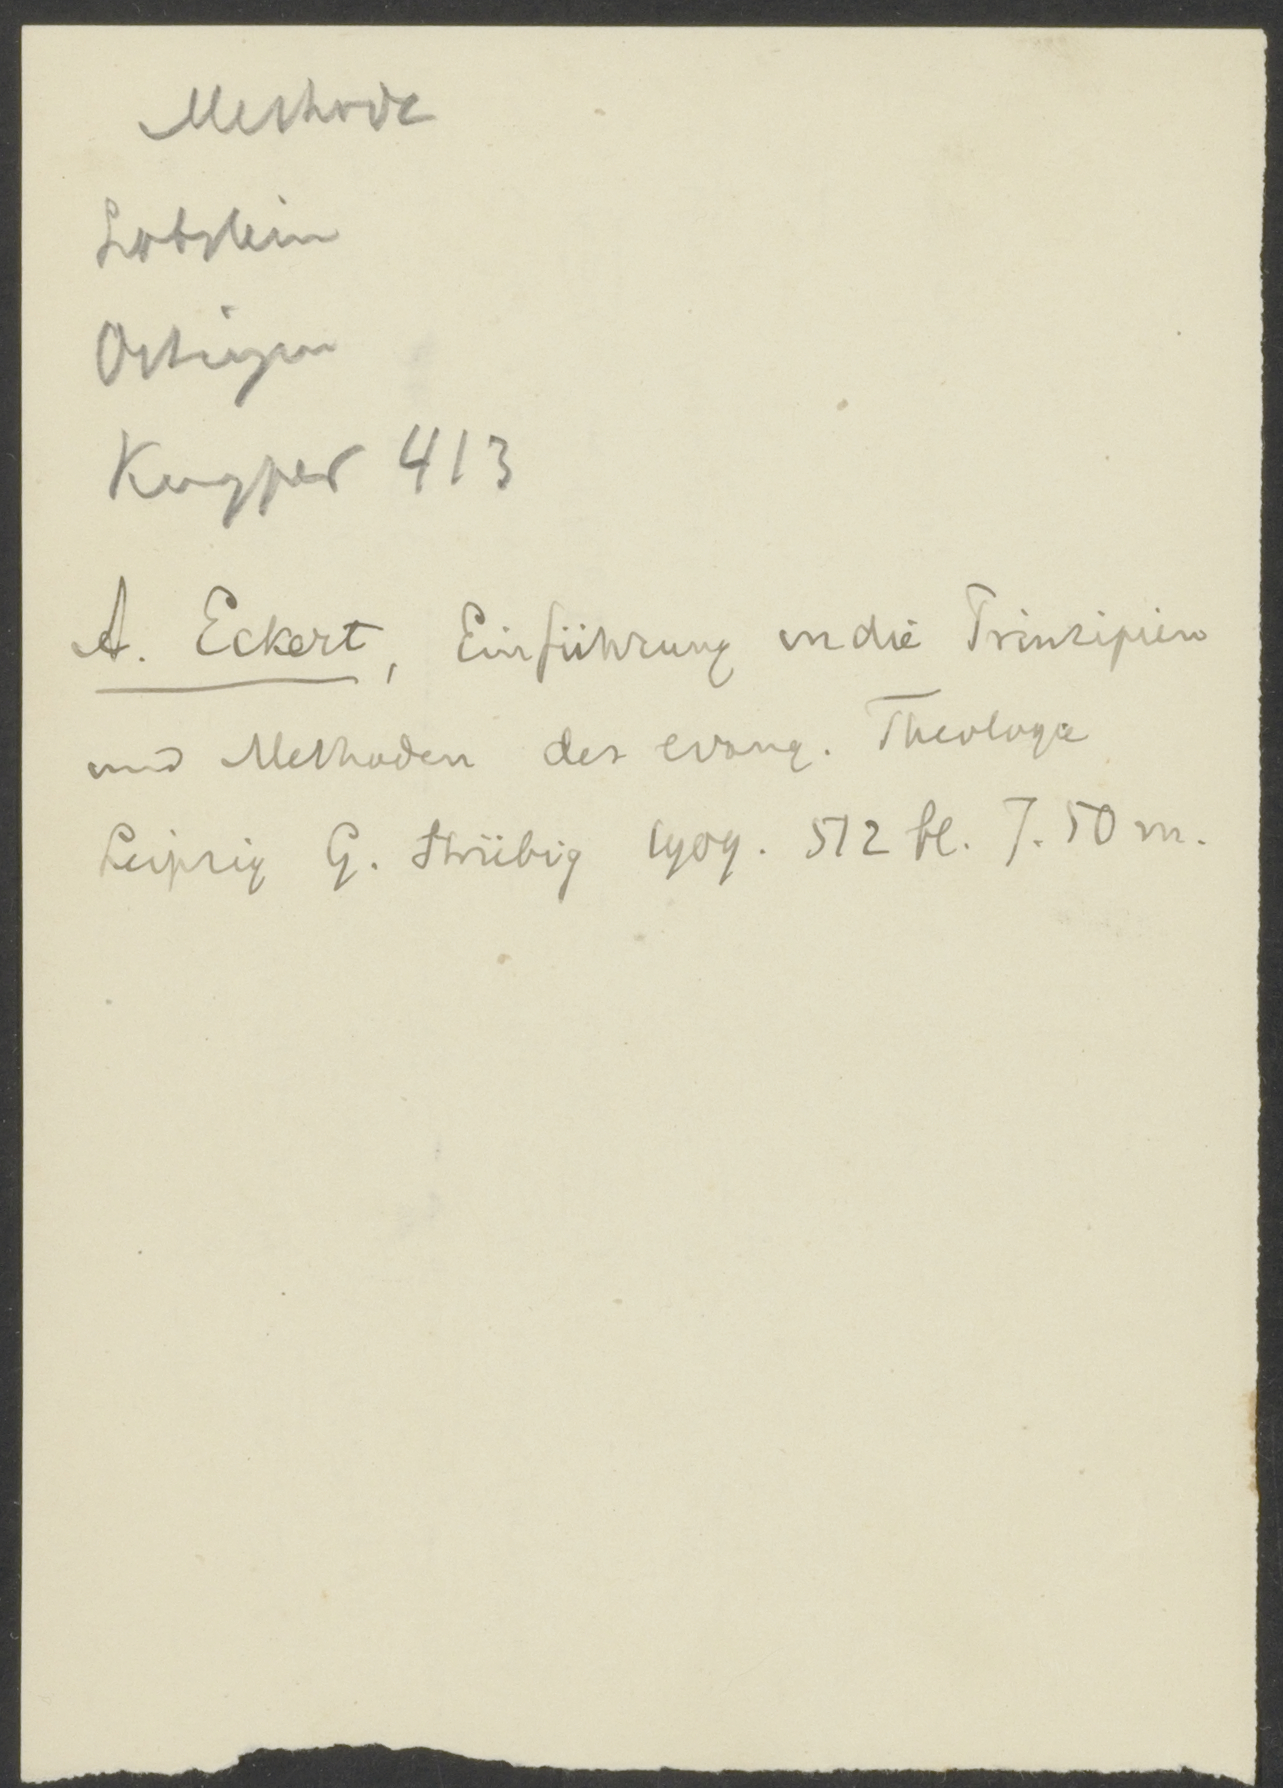 Methode
Lobstein
Ostingen
Kuyper 413
A. Eckert, Einführung in die Prinzipien
und Methoden der evang. Theologie
Leipzig G. Strübig 1909. 512 bl. 7.50 m.